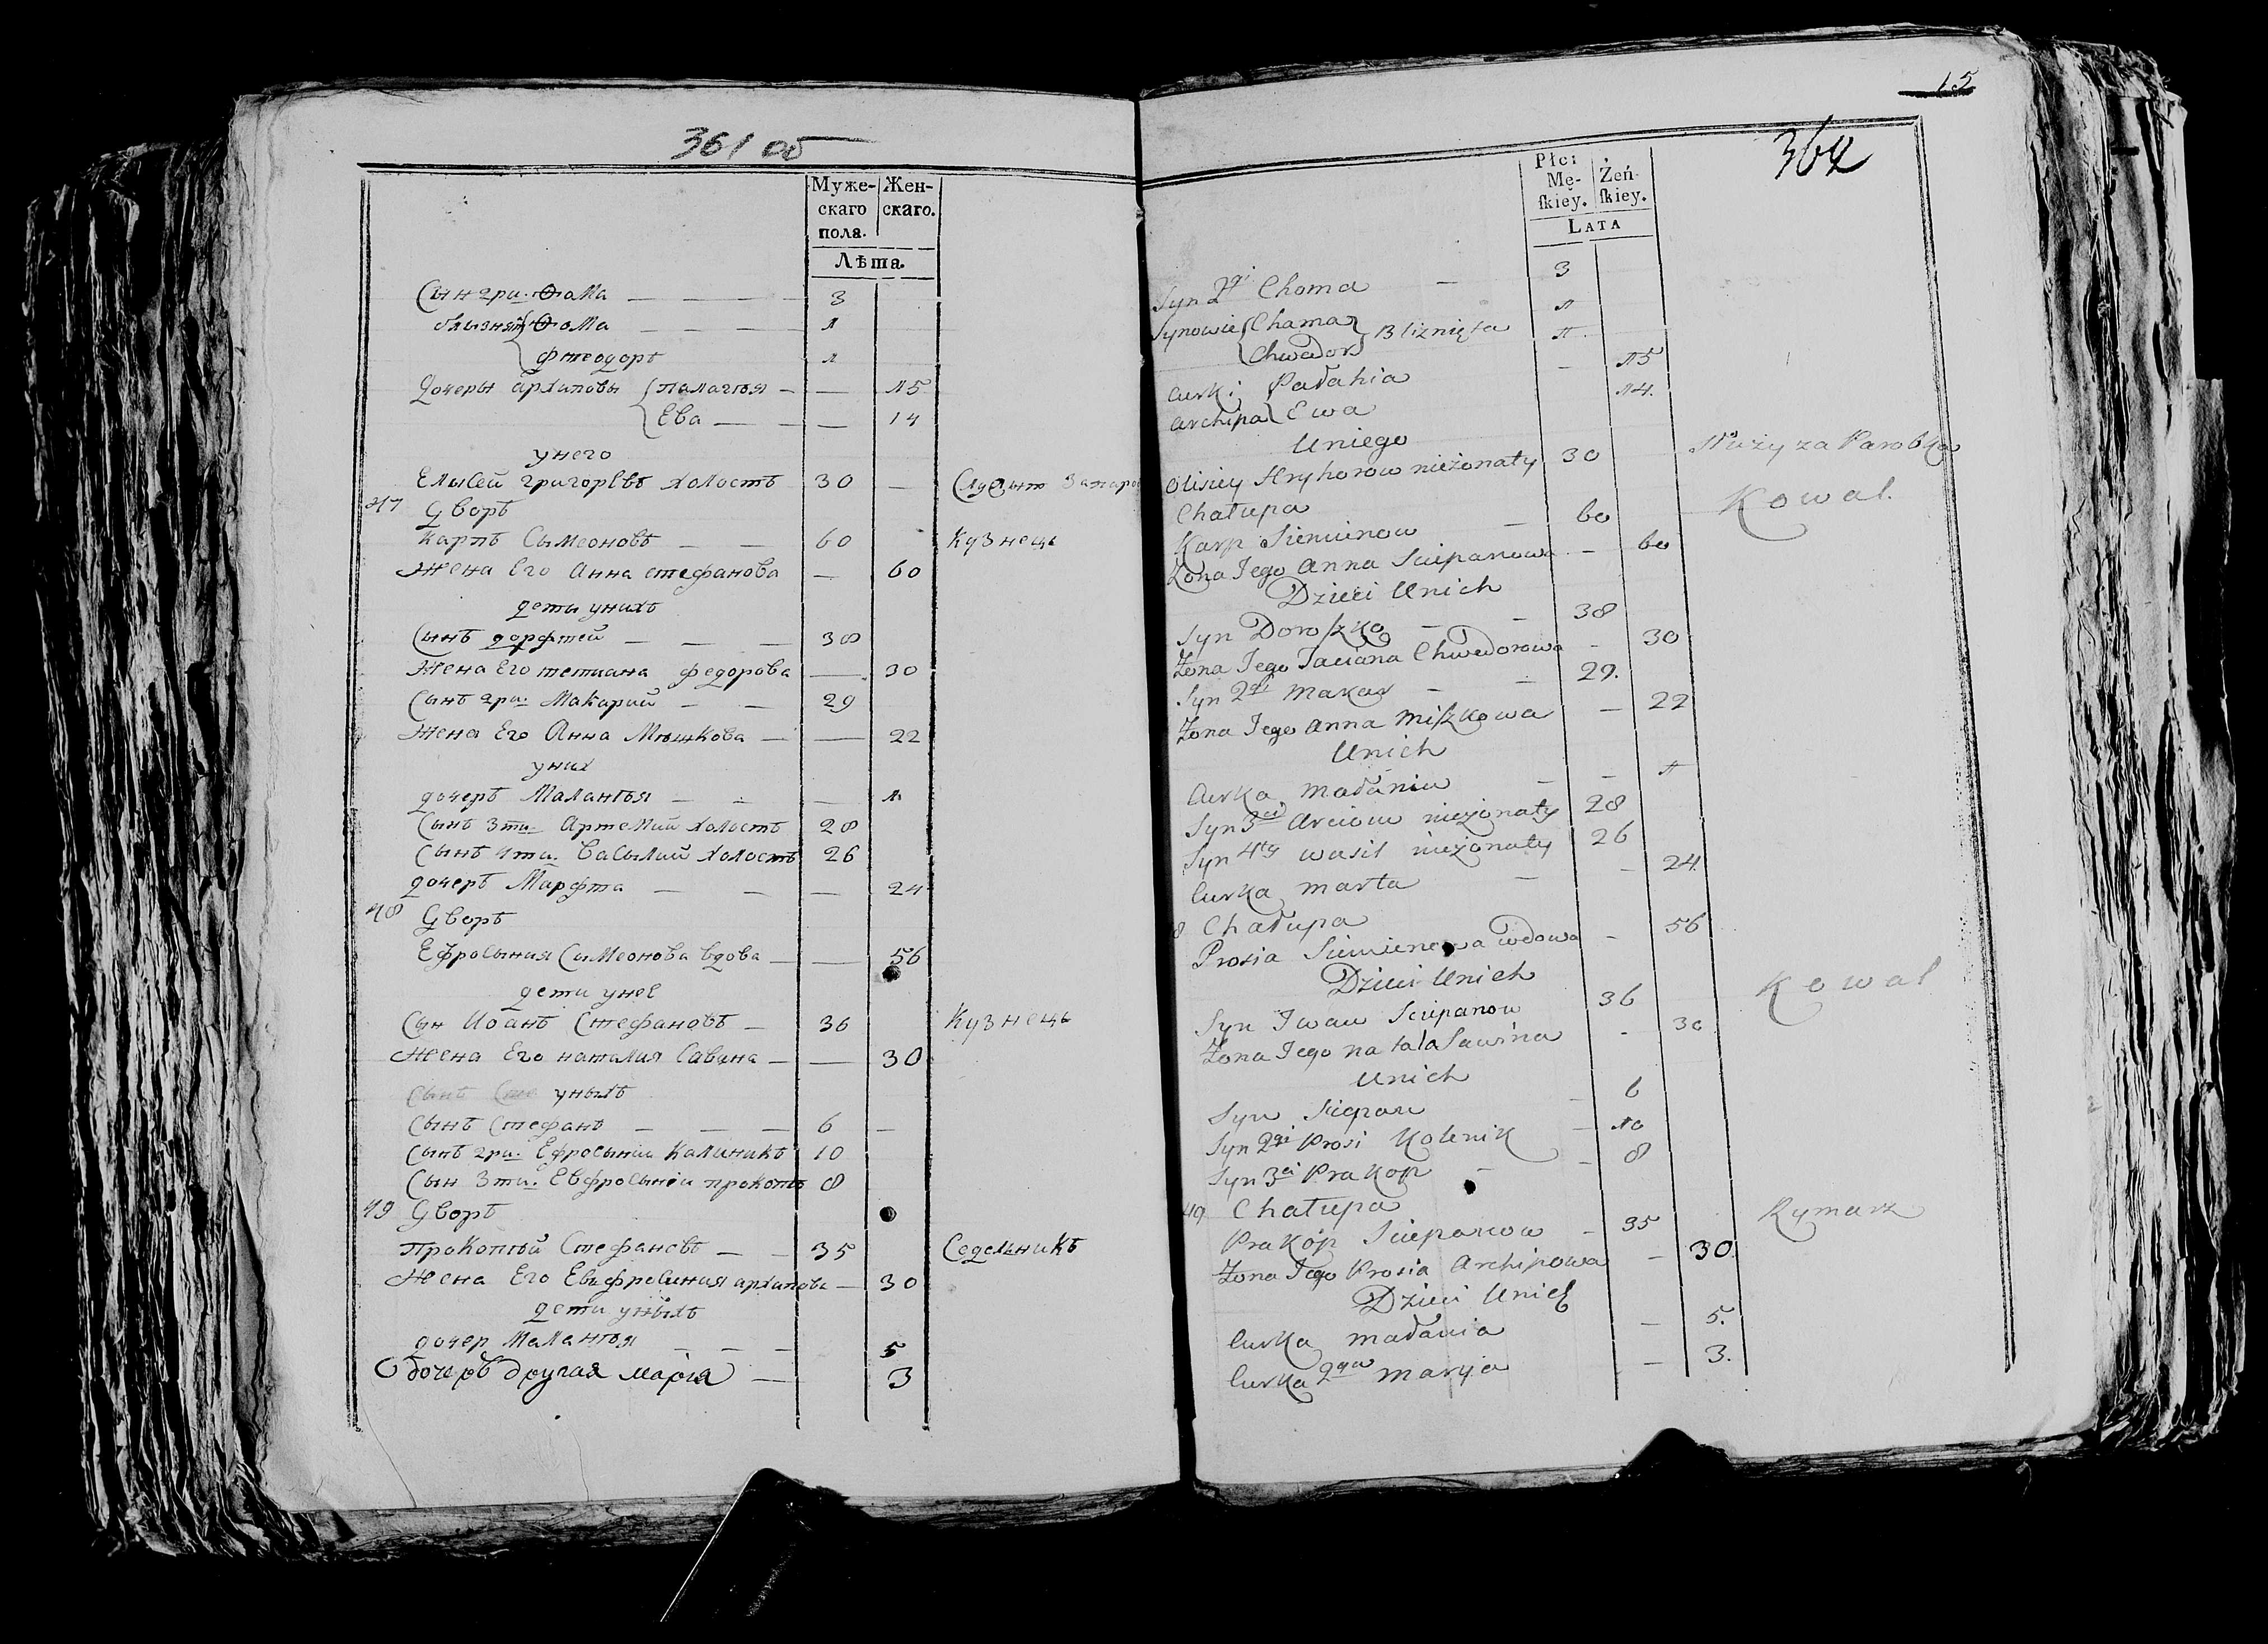 361 об
Муже- Жен-
скаго скаго.
пола.
Лѣта.
Сын гри. Ѳома — — — — 3
близнят Ѳома — — — — 1
фтеодоръ 1
Дочеры архиповы палагтя — — 15
Ева — — — 14
унего
Елысей григорЕвъ холостъ 30 —
47 Дворъ
Карпъ Сымеоновъ — — 60 Кузнецъ
Жена Его Анна стефанова — 60
дети унихъ
Сынъ дорфтей — — — 38
Жена Его тетиана федорова — 30
Сынъ гри. Макарий — — 29
Жена Его Анна Мышкова — — 22
уних
дочеръ Малантя — — — 1
Сынъ 3ти. Артемий холостъ 28
Сынъ 4ти. Васылий холостъ 26
дочеръ Марфта — — — 24
48 Дворъ
Ефросыния Сымеонова вдова — — 56
дети унеЕ
Сын Иоанъ Стефановъ — 36 Кузнецъ
Жена Его наталия Савина — — 30
уныхъ
Сынъ Стефанъ — — — 6 —
Сынъ гри. Ефросынии Калиникъ 10
Сын 3ти. Евфросынии прокопъ 8
49 Дворъ
Прокоптй Стефановъ — — 35 Седельникъ
Жена Его Евфросиния архипова — 30
дети уныхъ
дочер Малантя — — — 5
дочеръ другая марія — 3
15
362
Płci
Mę- Żeń-
ſkiey. ſkiey.
Lata
Syn 2gi Choma — 3
Synowie Chama Bliznięta 1
Chwedor 1
Curki Pałahia — 15
archipa Ewa 14.
Uniego
Olisiey Hryhorow nieżonaty 30 Służy za Parobka
Chałupa
Karp Siemienow — 60 Kowal.
Żona Jego Anna Sciepanowa — 60
Dzieci Unich
Syn Doroſzko — — 38
Żona Jego Taciana Chwedorowa — 30
Syn 2gi Makar — — 29.
Żona Jego Anna Miſzkowa — 22
Unich
Curka Małania — — 1
Syn 3ci Arciom nieżonaty 28
Syn 4ty Wasil nieżonaty 26
Curka Marta — — 24.
8 Chałupa
Prosia Siemienowa wdowa — 56
Dzieci Unich
Syn Jwan Sciepanow 36 Kowal
Żona Jego Natala Sawina — 30
Unich
Syn Sciepan — 6
Syn 2gi Prosi Kolenik — 10
Syn 3ci Prakop — — 8
49 Chałupa
Prakop Sciepanow — 35 Rymarz
Żona Jego Prosia Archipowa — 30.
Dzieci Unich
Curka Małania — 5.
Curka 2ga Maryja — 3.